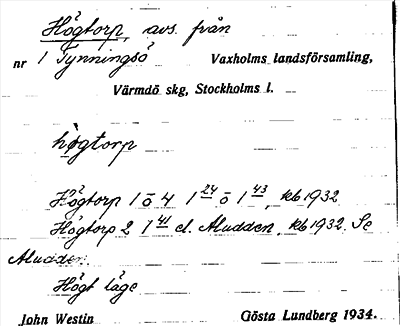 Högtorp, avs. från
nr 1 Tynningsö Vaxholms landsförsamling,
Värmdö skg, Stockholms l.
högtorp
Högtorp 1 o 4 1 24 o 1 43, kb 1932
Högtorp 2 1 41 el. Aludden, kb 1932. Se
Aludden.
Högt läge
John Westin Gösta Lundberg 1934.